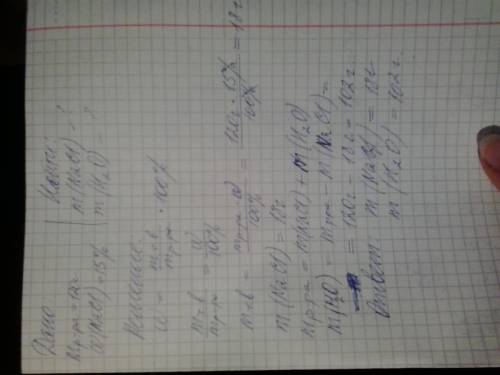 Дано
m р-ра = 120г
ω(NaCl) = 15%
Найти:
m(NaCl) - ?
m(H₂O) - ?
Решение
ω = m р.в / m р-ра · 100%
m р.в / m р-ра = ω / 100%
m р.в = m р-ра · ω / 100% = 120г · 15% / 100% = 18г
m(NaCl) = 18г
m р-ра = m(NaCl) + m(H₂O)
m(H₂O) = m р-ра - m(NaCl) =
= 120г - 18г = 102г.
Ответ m(NaCl) = 18г
m(H₂O) = 102г.